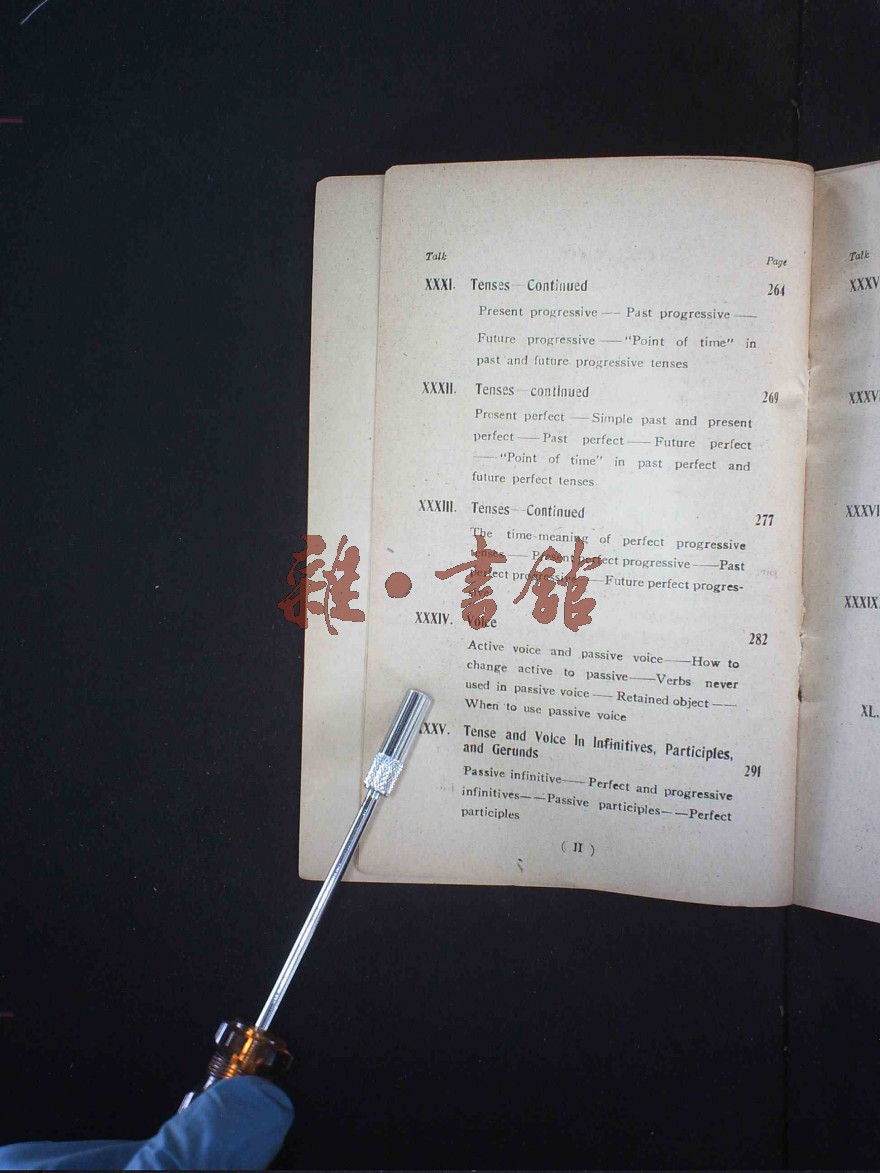 Talk Page
XXXI. Tenses—Continued 264
Present progressive — Past progressive —
Future progressive — "Point of time" in
past and future progressive tenses
XXXII. Tenses—continued 269
Present perfect — Simple past and present
perfect — Past perfect — Future perfect
— "Point of time" in past perfect and
future perfect tenses
XXXIII. Tenses—Continued 277
The time-meaning of perfect progressive
tenses — Present perfect progressive — Past
perfect progressive — Future perfect progres-
sive
XXXIV. Voice 282
Active voice and passive voice — How to
change active to passive — Verbs never
used in passive voice — Retained object —
When to use passive voice
XXXV. Tense and Voice In Infinitives, Participles,
and Gerunds 291
Passive infinitive — Perfect and progressive
infinitives — Passive participles — Perfect
participles
( 11 )
Talk
XXXIX
XL.
雜·書館